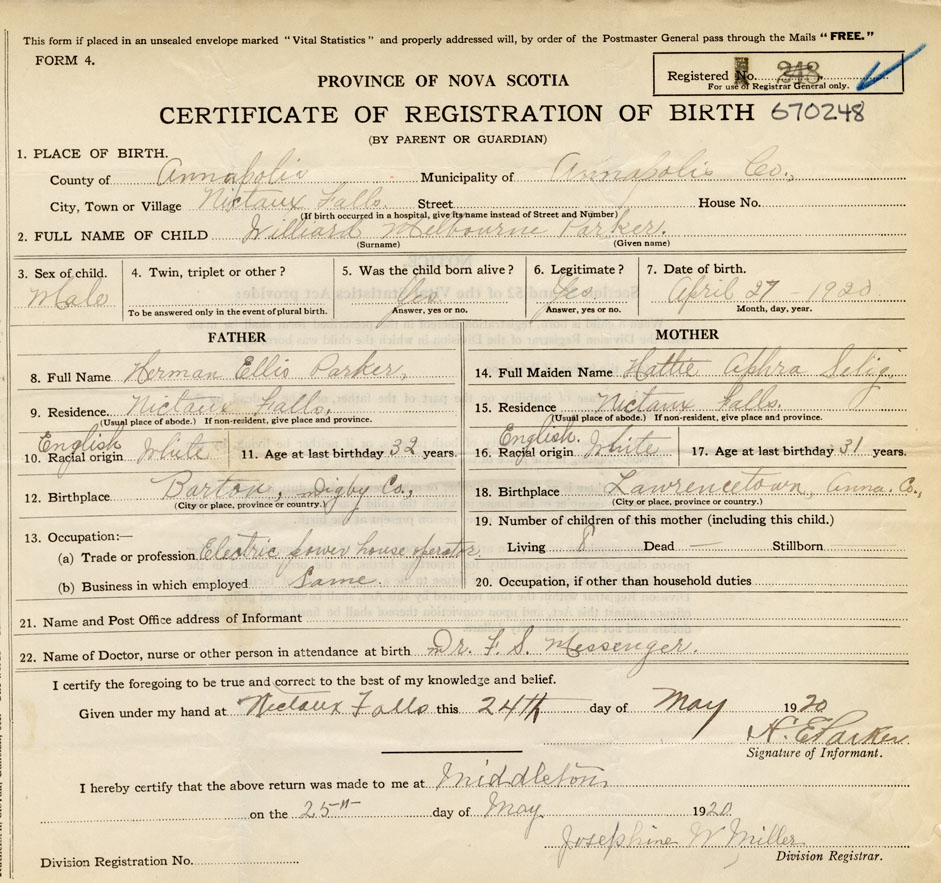 This form if placed in an unsealed envelope marked "Vital Statistics" and properly addressed will, by order of the Postmaster General pass through the Mails "FREE."
FORM 4.
Registered No. 248
For use of Registrar General only.
PROVINCE OF NOVA SCOTIA
CERTIFICATE OF REGISTRATION OF BIRTH 670248
(BY PARENT OR GUARDIAN)
1. PLACE OF BIRTH.
County of Annapolis Municipality of Annapolis Co.,
City, Town or Village Nictaux Falls. Street House No.
(If birth occurred in a hospital, give its name instead of Street and Number)
2. FULL NAME OF CHILD Williard Melbourne Parker.
(Surname) (Given name)
3. Sex of child. 4. Twin, triplet or other? 5. Was the child born alive? 6. Legitimate? 7. Date of birth.
Male Yes Yes April 27 - 1920
To be answered only in the event of plural birth. Answer, yes or no. Answer, yes or no. Month, day, year.
FATHER MOTHER
8. Full Name Herman Ellis Parker, 14. Full Maiden Name Hattie Aphra Selig,
9. Residence. Nictaux Falls. 15. Residence Nictaux Falls.
(Usual place of abode.) If non-resident, give place and province. (Usual place of abode.) If non-resident, give place and province.
English English.
10. Racial origin White 11. Age at last birthday 32 years. 16. Racial origin White 17. Age at last birthday 31 years.
12. Birthplace Barton, Digby Co., 18. Birthplace Lawrencetown, Anna. Co.,
(City or place, province or country.) (City or place, province or country.)
13. Occupation:— 19. Number of children of this mother (including this child.)
(a) Trade or profession Electric power house operator. Living 8 Dead — Stillborn
(b) Business in which employed Same. 20. Occupation, if other than household duties
21. Name and Post Office address of Informant
22. Name of Doctor, nurse or other person in attendance at birth Dr. F. S. Messenger.
I certify the foregoing to be true and correct to the best of my knowledge and belief.
Given under my hand at Nictaux Falls this 24th day of May 1920
H. E. Parker.
Signature of Informant.
I hereby certify that the above return was made to me at Middleton,
on the 25th day of May 1920
Josephine W Miller
Division Registration No. Division Registrar.